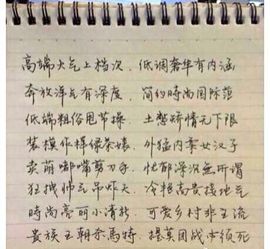 高端大气上档次 低调奢华有内涵
奔放洋气有深度 简约时尚国际范
低端粗俗甩节操 土鳖矫情无下限
装模作样绿茶婊 外猛内柔女汉子
卖萌嘟嘴剪刀手 忧郁深沉无所谓
狂拽帅气吊炸天 冷艳高贵接地气
時尚亮丽小清新 可爱乡村非主流
贵族王朝杀馬特 提莫团战必须死